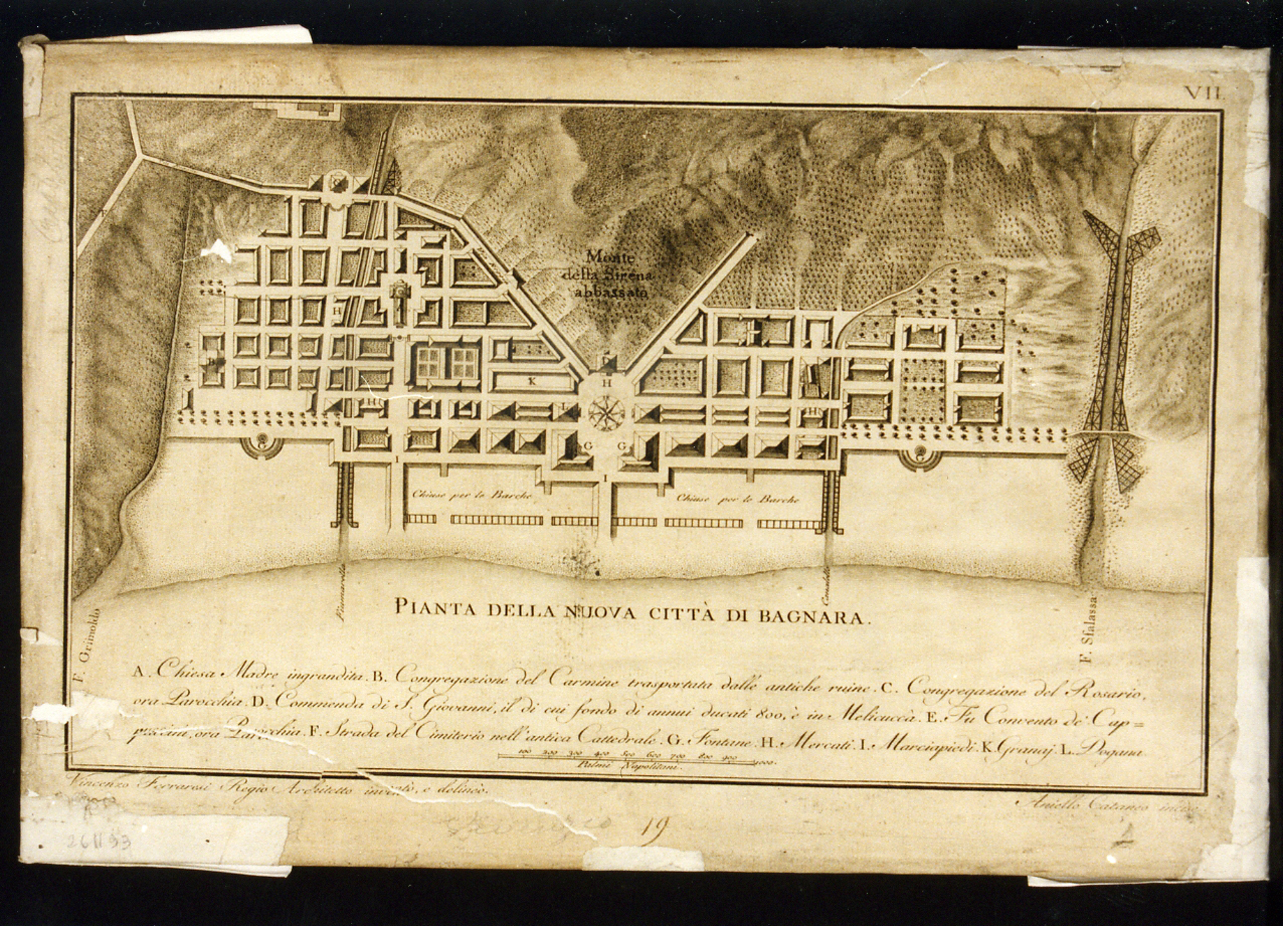 VII.
Monte
della Sirena
abbassato
K
H
H
H
H
L
G
G
I
I
I
G
G
Chiuse per le Barche
Chiuse per le Barche
Fiumarella
F. Grimoldo
F. Sfalassa
PIANTA DELLA NUOVA CITTÀ DI BAGNARA.
A. Chiesa Madre ingrandita. B. Congregazione del Carmine trasportata dalle antiche ruine. C. Congregazione del Rosario,
ora Parocchia. D. Commenda di S. Giovanni, il di cui fondo di annui ducati 800, è in Melicuccà. E. Fu Convento de' Cap=
puccini, ora Parocchia. F. Strada del Cimiterio nell'antica Cattedrale. G. Fontane. H. Mercati. I. Marciapiedi. K. Granaj. L. Dogana
100 200 300 400 500 600 700 800 900 1000
Palmi Napolitani
Vincenzo Ferraresi Regio Architetto inventò, e delineò.
Aniello Cataneo incise
19
261193